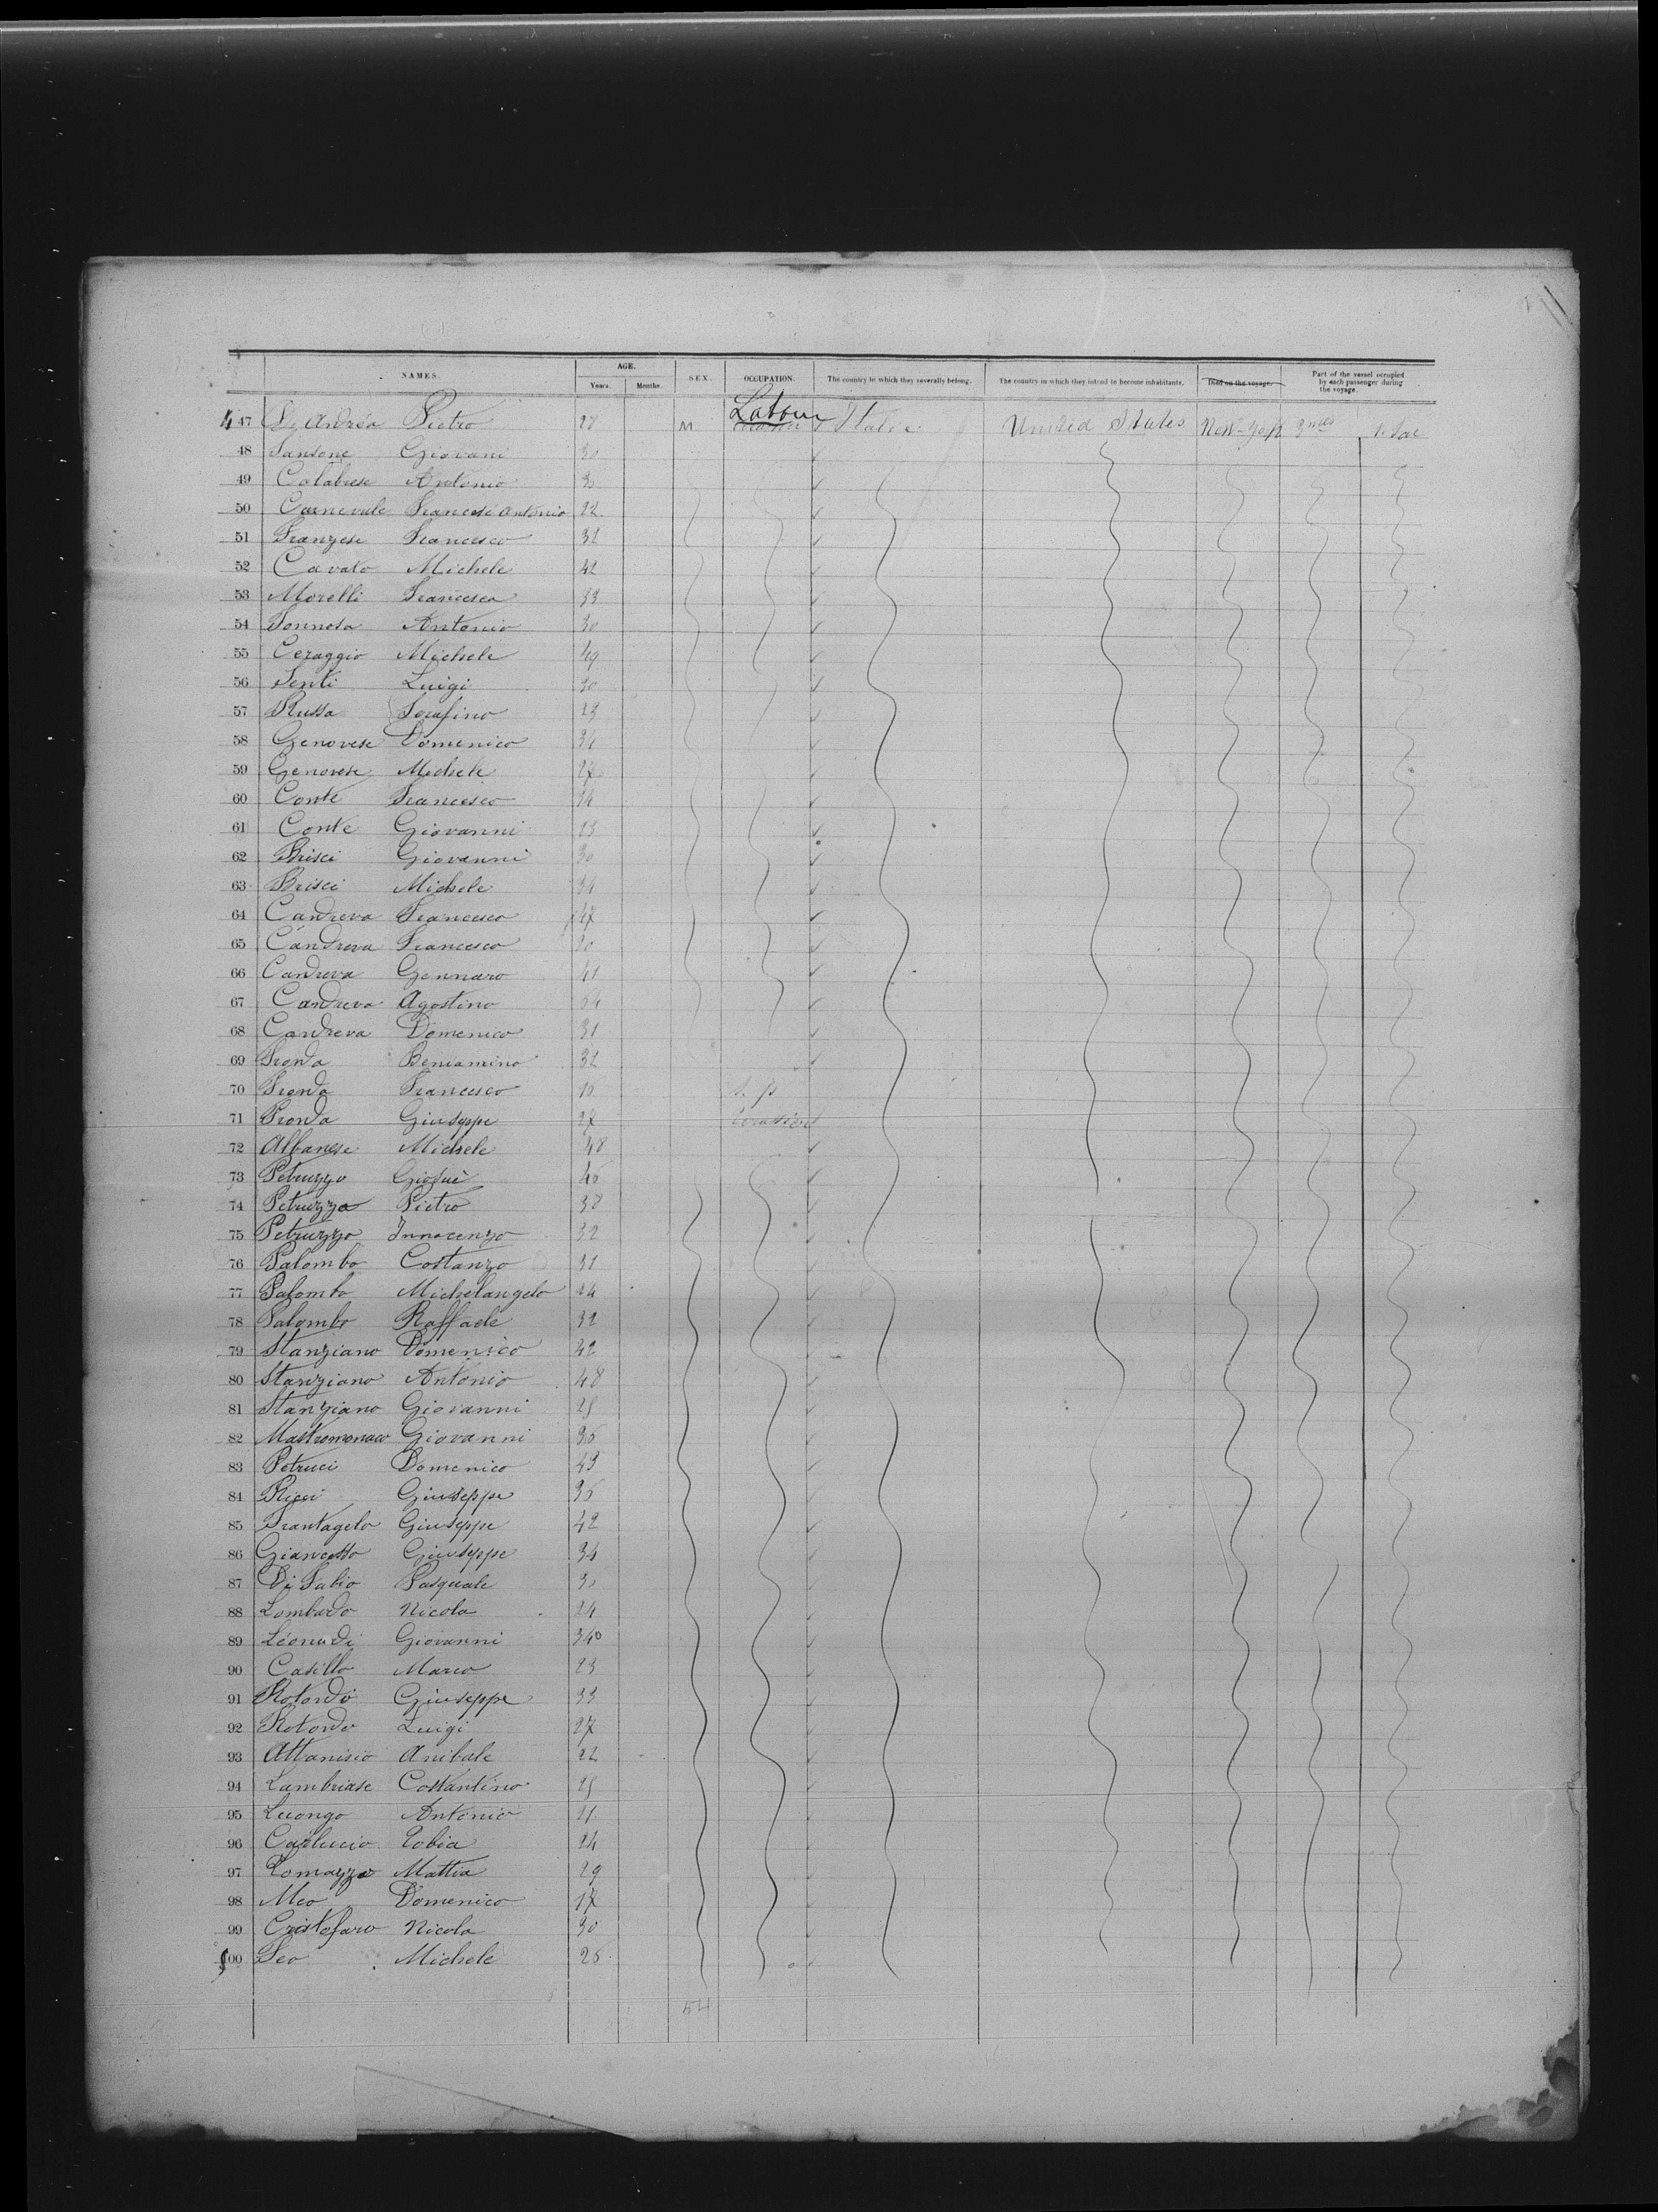 NAMES. AGE. SEX. OCCUPATION. The country to which they severally belong. The country in which they intend to become inhabitants. Died on the voyage. Part of the vessel occupied by each passenger during the voyage.
Years. Months.
447 D'Andréa Pietro 28 M Labour Italie United States New-York 3mes 1. Sac
48 Sansone Giovani 30
49 Calabrese Antonio 30
50 Carnevale Francesc Antonio 22
51 Franzese Francesco 32
52 Cavato Michele 42
53 Morelli Francesca 33
54 Antonio 30
55 Ceraggio Michele 49
56 Senti Luigi 30
57 Russa Serafino 23
58 Genovese Domenico 34
59 Genovese Michele 27
60 Conte Francesco 34
61 Conte Giovanni 23
62 Brisci Giovanni 30
63 Brisci Michele 34
64 Candreva Francesco 47
65 Candreva Francesco 20
66 Candreva Gennaro 41
67 Candreva Agostino
68 Candreva Domenico 31
69 Fronda Beniamino 32
70 Fronda Francesco 10 s. p
71 Fronda Giuseppe 27
72 Albanese Michele 48
73 Petruzzo Giosuè 45
74 Petruzzo Pietro 38
75 Petruzzo Innocenzo 32
76 Palombo Costanzo 31
77 Palombo Michelangelo 24
78 Palombo Raffaele 32
79 Stanziano Domenico 42
80 Stanziano Antonio 48
81 Stanziano Giovanni 25
82 Mastromonaco Giovanni 36
83 Petruci Domenico 43
84 Ricci Giuseppe 35
85 Frantagelo Giuseppe 42
86 Giancotto Giuseppe 34
87 Di Fabio Pasquale 35
88 Lombardo Nicola 24
89 Léonardi Giovanni 340
90 Casillo Marco 23
91 Rotondo Giuseppe 33
92 Rotondo Luigi 27
93 Attanisio Anibale 22
94 Lambriase Costantino 25
95 Luongo Antonio 21
96 Carluccio Tobia 24
97 Tomazzo Mattia 29
98 Meo Domenico 17
99 Cristofaro Nicola 30
500 Leo Michele 25
54